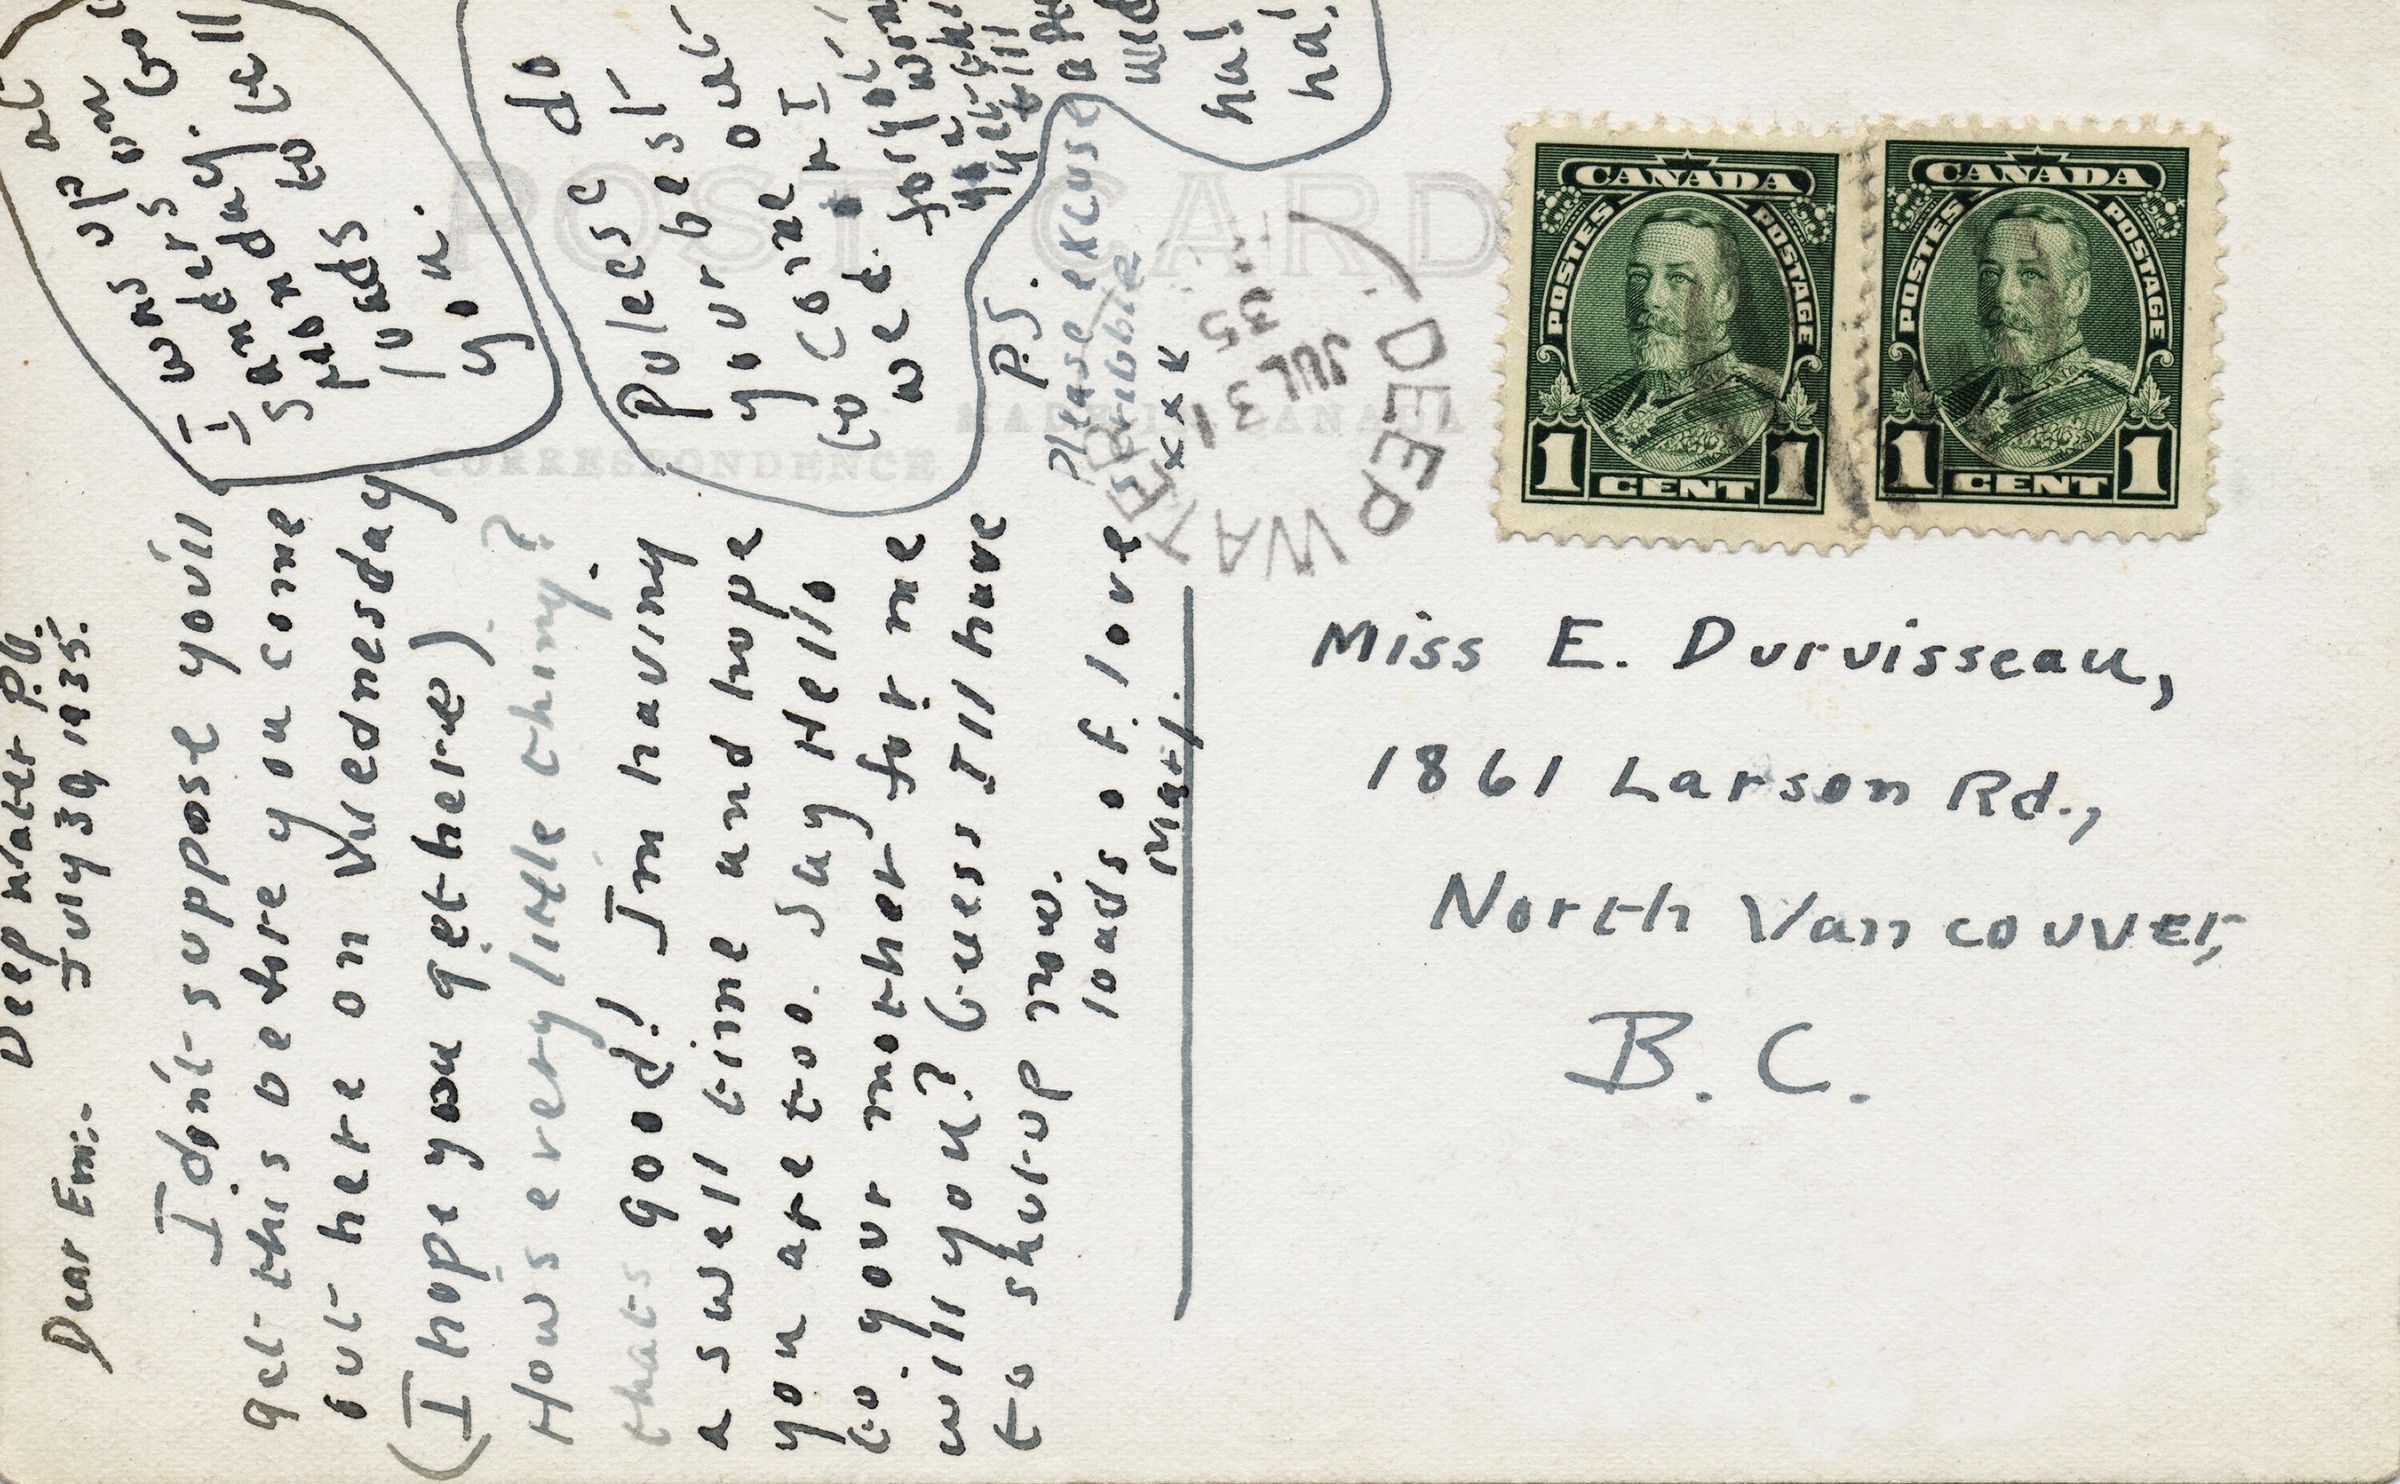 POST CARD
CORRESPONDENCE
MADE IN CANADA
Deep Water P.O.
July 30, 1935.
Dear Em:-
I don't suppose you'll
get this before you come
out here on Wednesday
(I hope you get here).
Hows every little thing?
thats good! Im having
a swell time and hope
you are too. Say Hello
to your mother for me
will you? Guess I'll have
to shut-up now.
loads of love
Mar.
P.S.
please excuse
scribble
xxx
I was up at
Sanders on
Sunday. Got
loads to tell
you.
Pulese do
your best
to come out
wed.
ha!
ha!
DEEP WATER
JUL 31
35
CANADA
POSTES POSTAGE
1 CENT 1
CANADA
POSTES POSTAGE
1 CENT 1
Miss E. Durvisseau,
1861 Larson Rd.,
North Vancouver,
B. C.